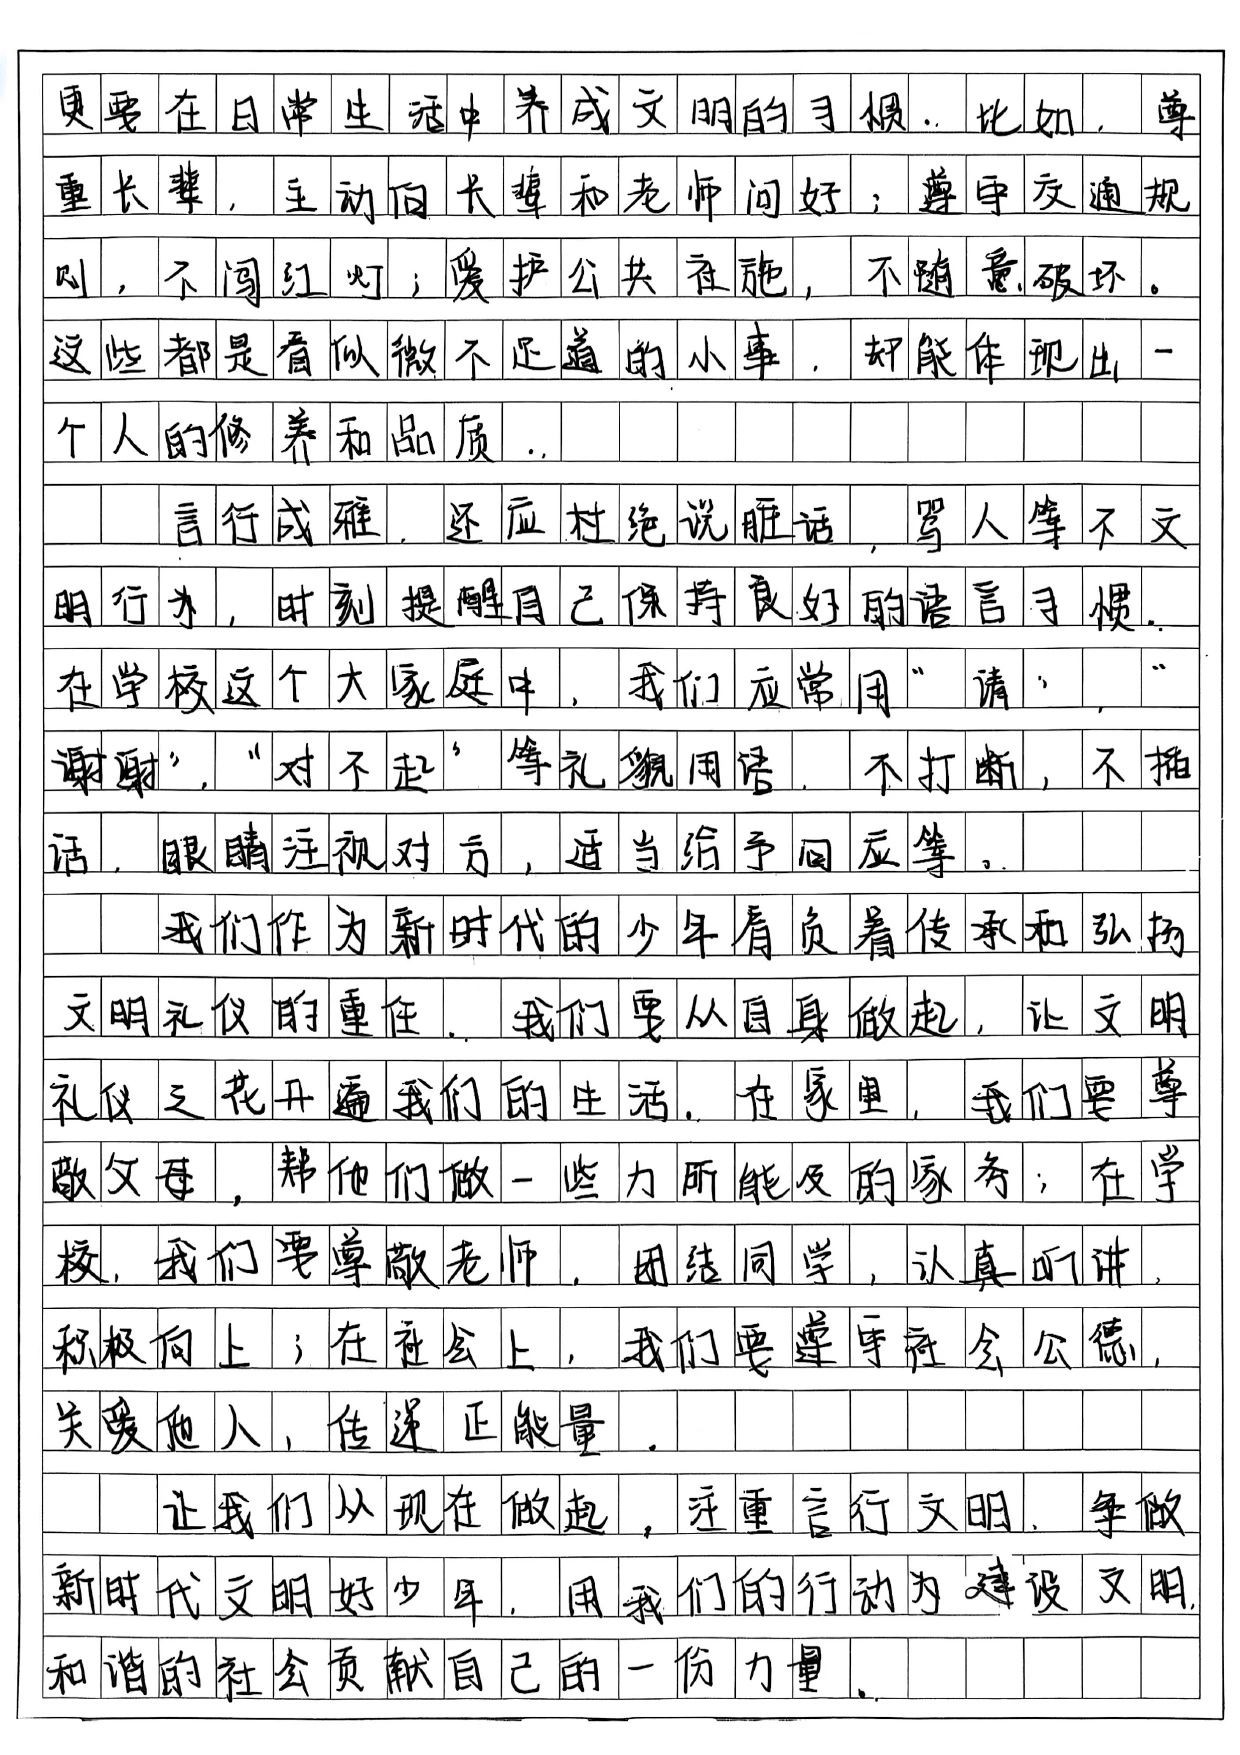 更要在日常生活中养成文明的习惯。比如，尊
重长辈，主动向长辈和老师问好；遵守交通规
则，不闯红灯；爱护公共设施，不随意破坏。
这些都是看似微不足道的小事，却能体现出一
个人的修养和品质。
言行成雅，还应杜绝说脏话，骂人等不文
明行为，时刻提醒自己保持良好的语言习惯。
在学校这个大家庭中，我们应常用“请”，“
谢谢”，“对不起”等礼貌用语，不打断，不插
话，眼睛注视对方，适当给予回应等。
我们作为新时代的少年肩负着传承和弘扬
文明礼仪的重任。我们要从自身做起，让文明
礼仪之花开遍我们的生活。在家里，我们要尊
敬父母，帮他们做一些力所能及的家务；在学
校，我们要尊敬老师，团结同学，认真听讲，
积极向上；在社会上，我们要遵守社会公德，
关爱他人，传递正能量。
让我们从现在做起，注重言行文明，争做
新时代文明好少年，用我们的行动为建设文明，
和谐的社会贡献自己的一份力量。